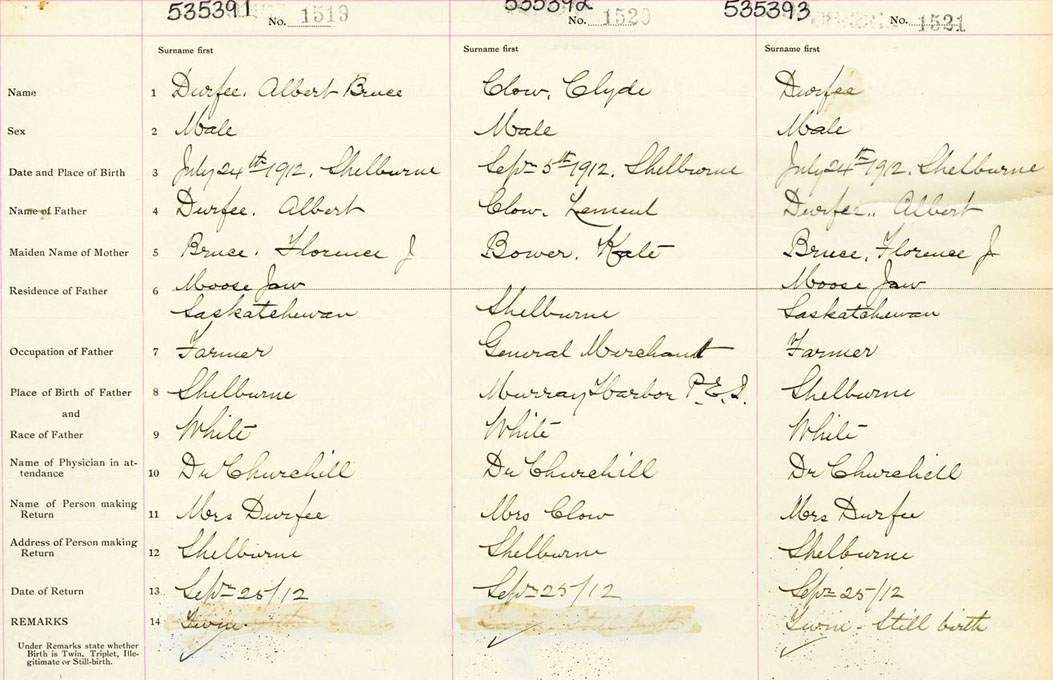 535391 No. 1519 535392 No. 1520 535393 No. 1521
Surname first Surname first Surname first
Name 1 Durfee. Albert Bruce Clow, Clyde Durfee
Sex 2 Male Male Male
Date and Place of Birth 3 July 24th 1912. Shelburne Sept 5th 1912. Shelburne July 24th 1912. Shelburne
Name of Father 4 Durfee. Albert Clow. Lemuel Durfee.. Albert
Maiden Name of Mother 5 Bruce. Florence J Bower. Kate Bruce, Florence J
Residence of Father 6 Moose Jaw Moose Jaw
Saskatchewan Shelburne Saskatchewan
Occupation of Father 7 Farmer General Merchant Farmer
Place of Birth of Father 8 Shelburne Murray Harbor P.E.I. Shelburne
and
Race of Father 9 White White White
Name of Physician in at-
tendance 10 Dr Churchill Dr Churchill Dr Churchill
Name of Person making
Return 11 Mrs Durfee Mrs Clow Mrs Durfee
Address of Person making
Return 12 Shelburne Shelburne Shelburne
Date of Return 13 Sept 25/12 Sept 25/12 Sept 25/12
REMARKS 14 Twin. Twin - Still birth
Under Remarks state whether
Birth is Twin. Triplet, Ille-
gitimate or Still-birth.